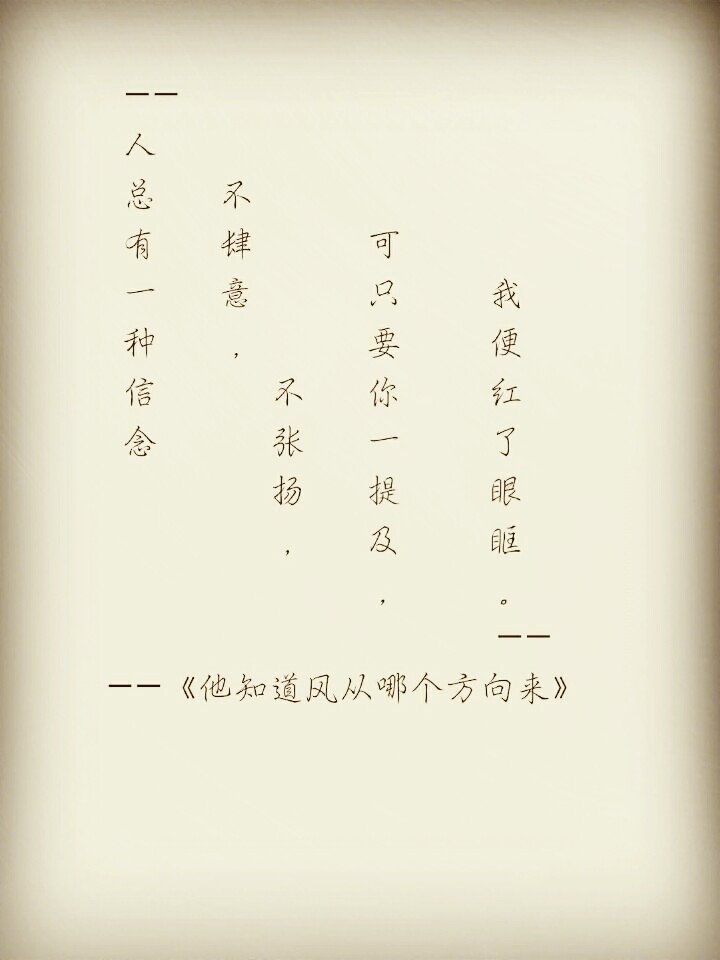 ——
人总有一种信念
不肆意，
不张扬，
可只要你一提及，
我便红了眼眶。
——
——《他知道风从哪个方向来》